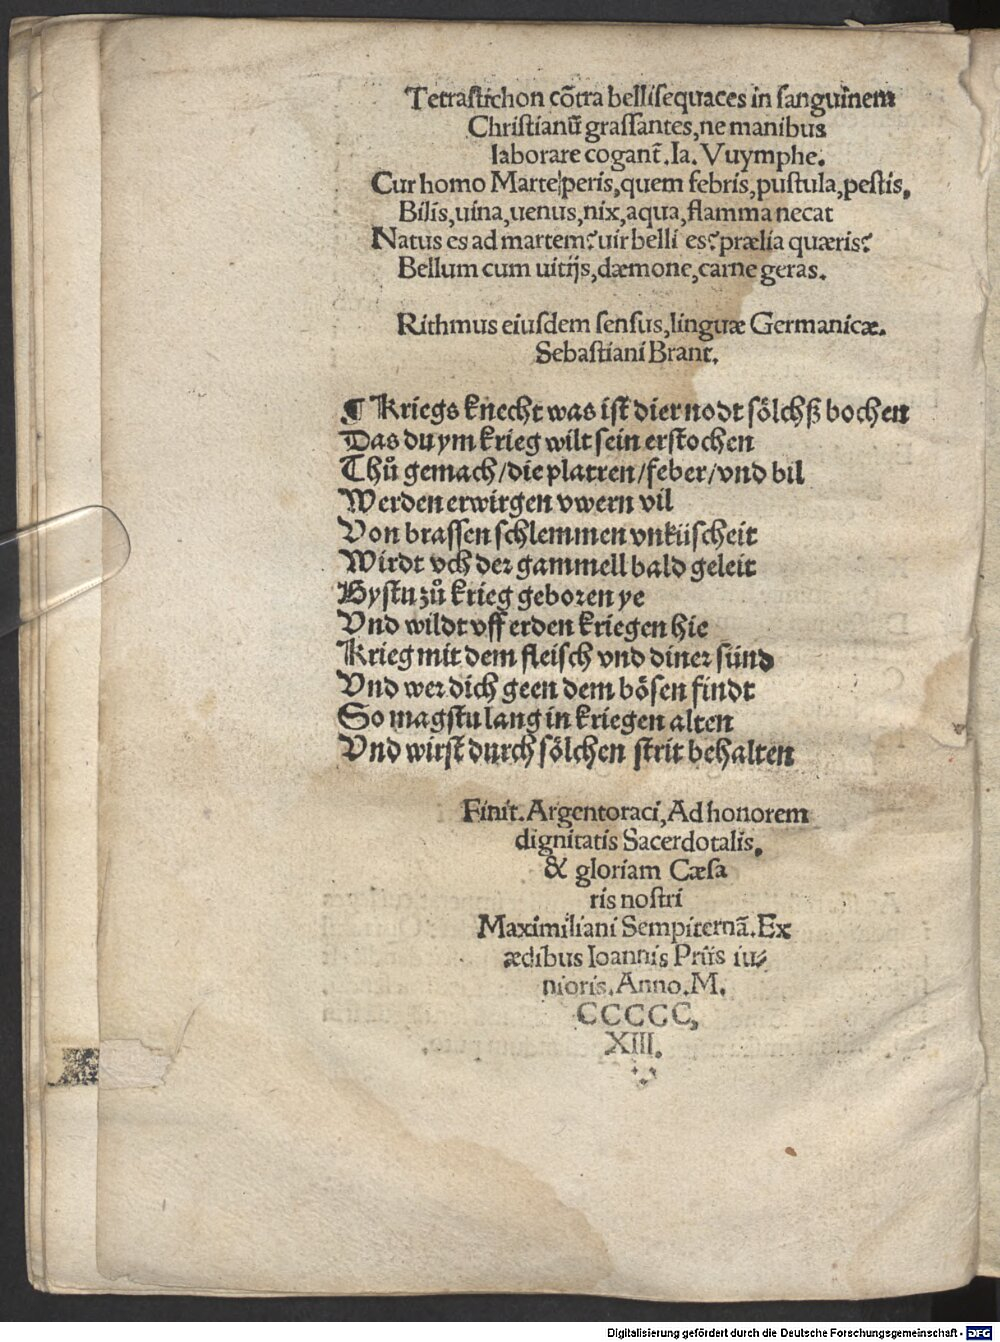 Tetrastichon cõtra bellisequaces in sanguinem
Christianũ grassantes, ne manibus
laborare cogant̃. Ia. Vuymphe.
Cur homo Marte peris, quem febris, pustula, pestis,
Bilis, uina, uenus, nix, aqua, flamma necat
Natus es ad martem? uir belli es? prælia quæris?
Bellum cum uitijs, dæmone, carne geras.
Rithmus eiusdem sensus, linguæ Germanicæ.
Sebastiani Brant.
¶ Kriegs knecht was ist dier nodt sölchß bochen
Das du ym krieg wilt sein erstochen
Thů gemach/die platren/feber/vnd bil
Werden erwirgen vwern vil
Von brassen schlemmen vnküscheit
Wirdt vch der gammell bald geleit
Bystu zů krieg geboren ye
Vnd wildt vff erden kriegen hie
Krieg mit dem fleisch vnd diner sünd
Vnd wer dich geen dem bösen findt
So magstu lang in kriegen alten
Vnd wirst durch sölchen strit behalten
Finit. Argentoraci, Ad honorem
dignitatis Sacerdotalis,
& gloriam Cæsa
ris nostri
Maximiliani Sempiternã. Ex
ædibus Ioannis Prüs iu⸗
nioris. Anno. M.
CCCCC,
XIII.
Digitalisierung gefördert durch die Deutsche Forschungsgemeinschaft - DFG